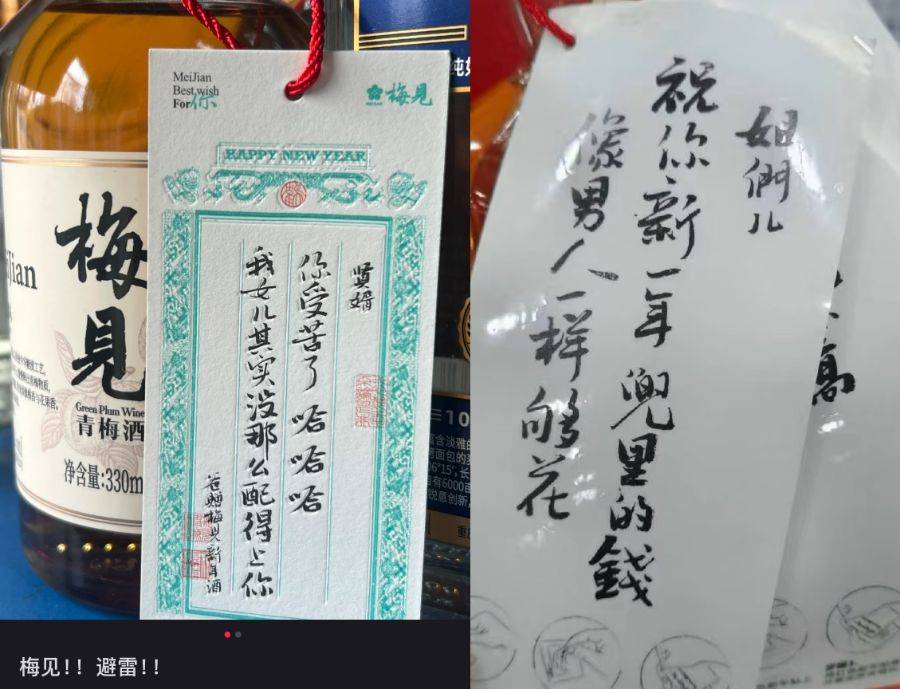 Jian
梅
見
Green Plum Wine
青梅酒
净含量:330m
MeiJian
Best wish
For你
梅見
HAPPY NEW YEAR
贤婿
你受苦了 哈哈哈
我女儿其实没那么配得上你
爸赠梅见新年酒
姐們儿
祝你新一年兜里的錢
像男人一样够花
高
梅见!! 避雷!!